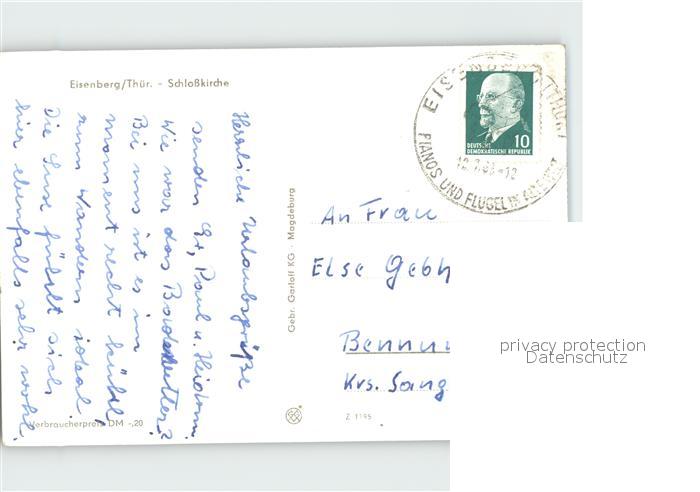 Eisenberg/Thür. - Schloßkirche
Herrliche Urlaubsgrüße
senden Paul u.
Wie war das Badewetter?
Bei uns ist es im
moment recht kühl,
zum Wandern ideal,
Die Luise fühlt sich
hier ebenfalls sehr wohl.
Verbraucherpreis DM -,20
Gebr. Garloff KG · Magdeburg
Z 1195
EISENBERG (THÜR)
-12
PIANOS UND FLÜGEL IN
10
DEUTSCHE
DEMOKRATISCHE REPUBLIK
An Frau
Else Gebh
Bennun
Krs. Sang
privacy protection
Datenschutz